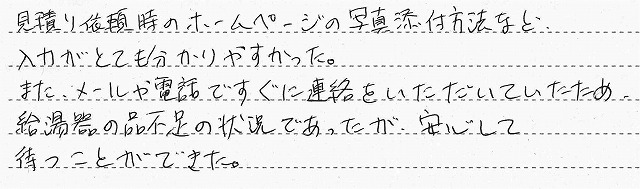 見積り依頼時のホームページの写真添付方法など、
入力がとても分かりやすかった。
また、メールや電話ですぐに連絡をいただいていたため、
給湯器の品不足の状況であったが、安心して
待つことができた。